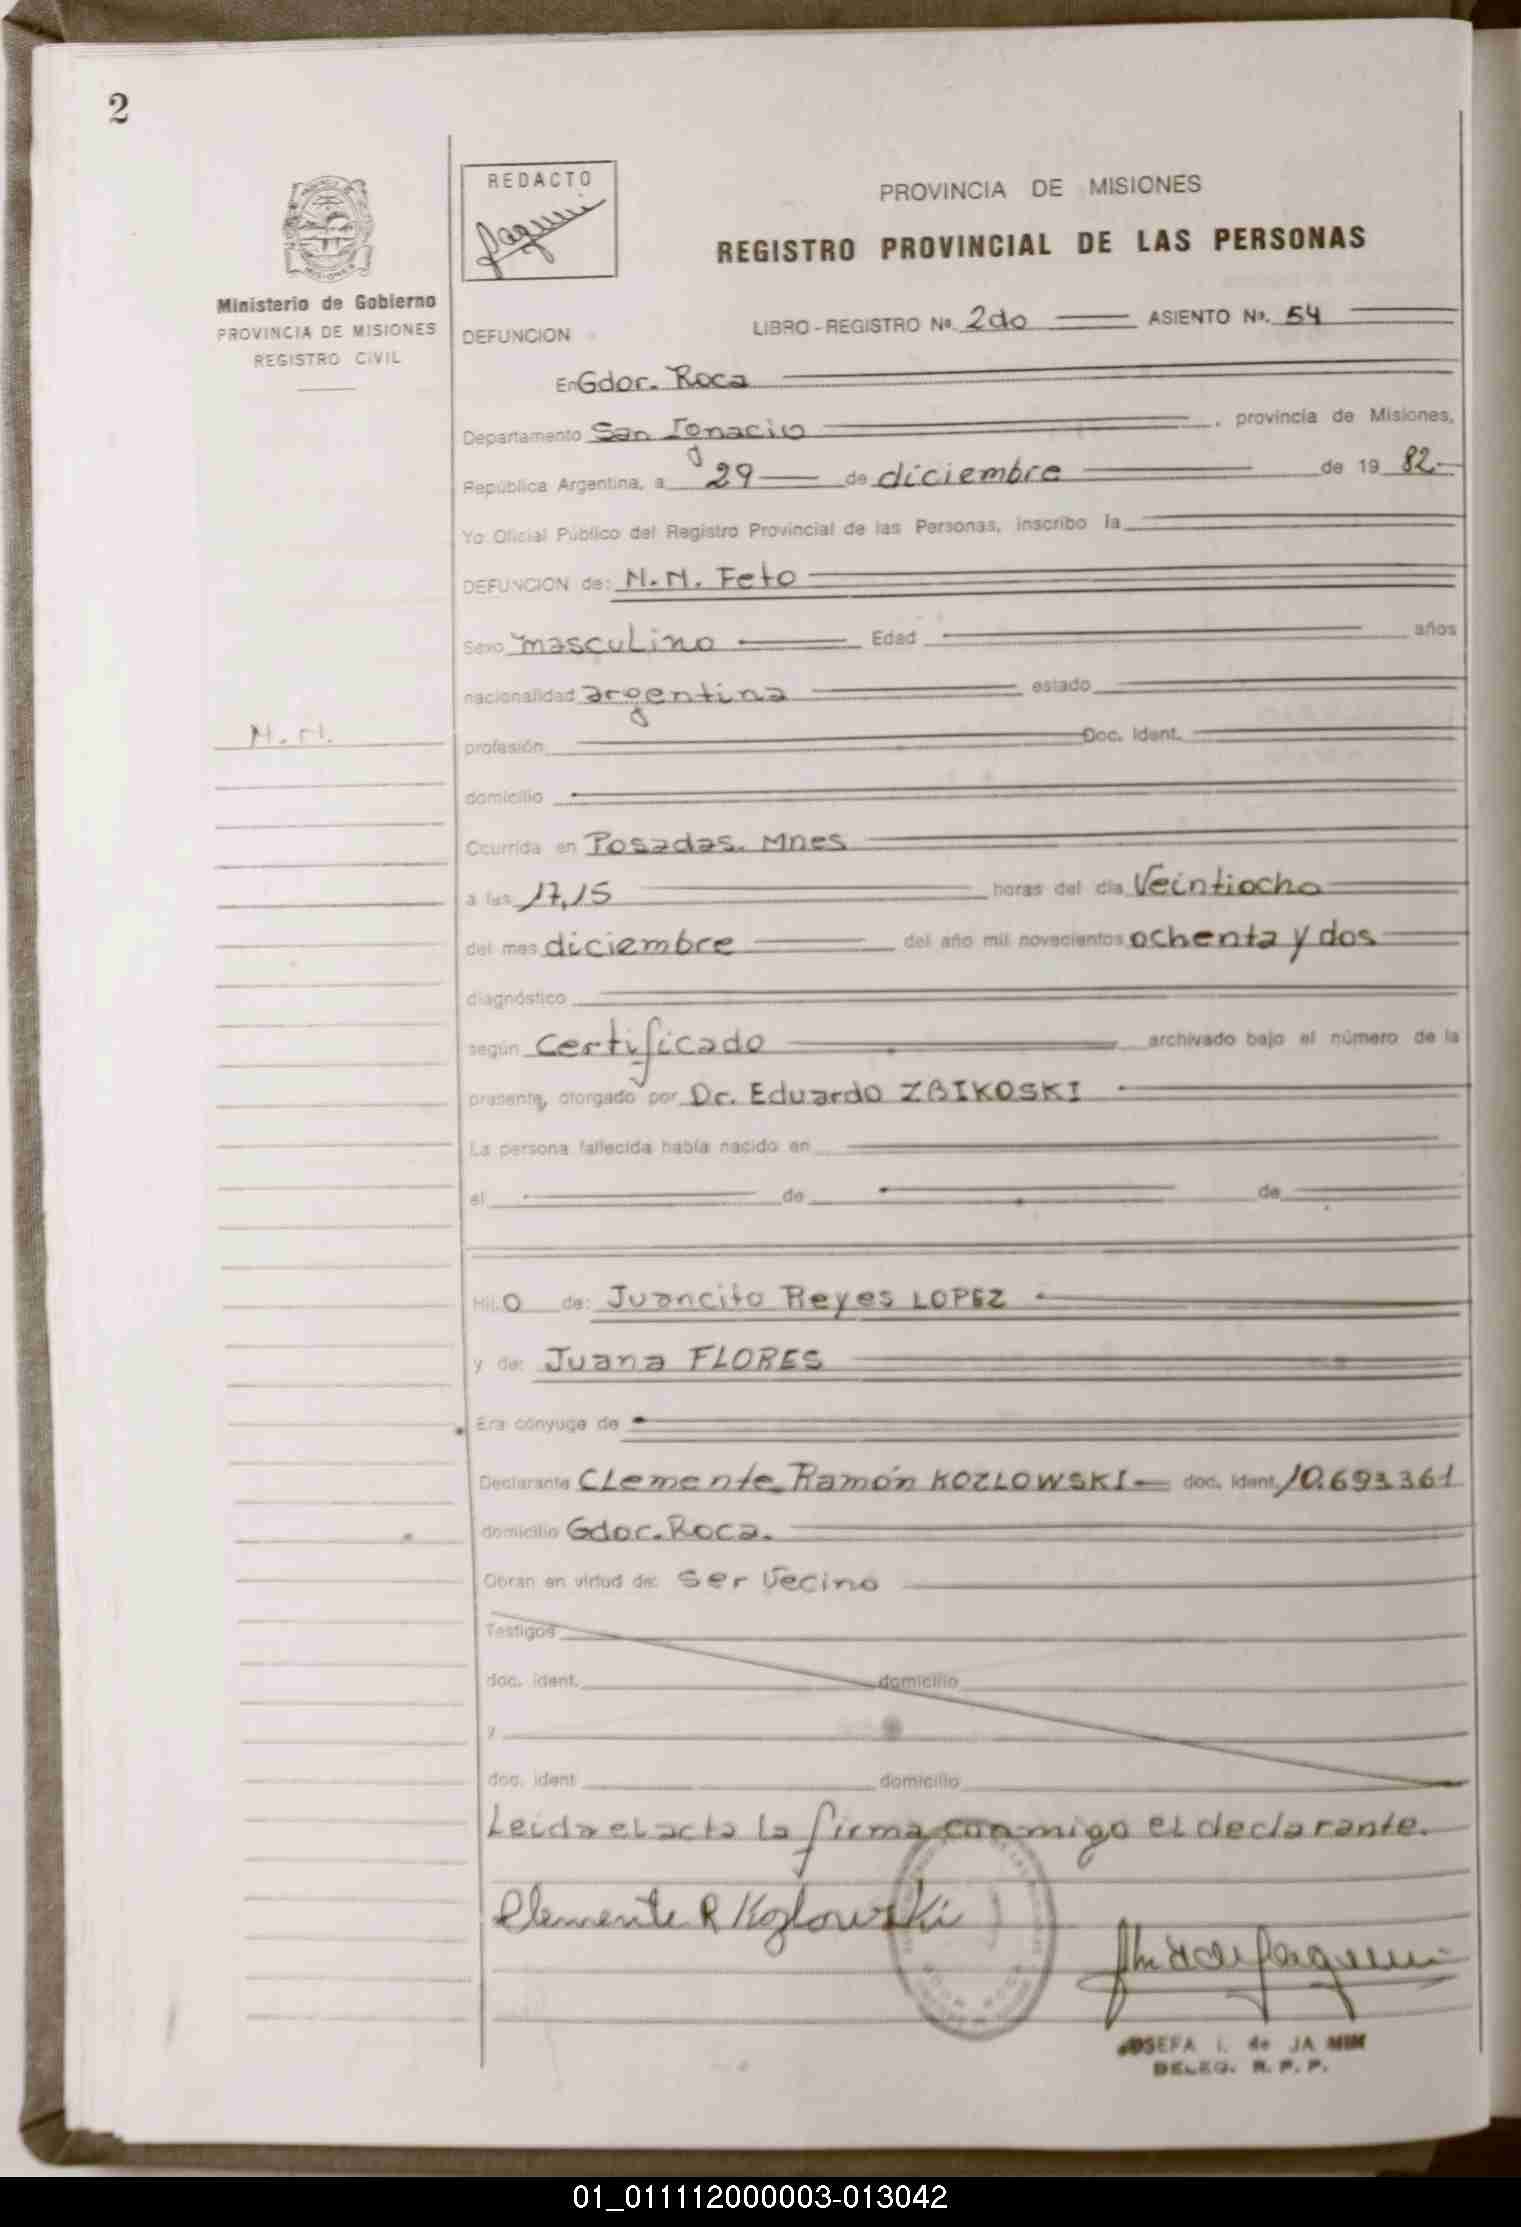 2
REDACTO
PROVINCIA DE MISIONES
REGISTRO PROVINCIAL DE LAS PERSONAS
Ministerio de Gobierno
PROVINCIA DE MISIONES
REGISTRO CIVIL
DEFUNCION LIBRO-REGISTRO No. 2do ASIENTO No. 54
En Gdor. Roca
Departamento San Ignacio, provincia de Misiones,
República Argentina, a 29 de diciembre de 1982.-
Yo Oficial Público del Registro Provincial de las Personas, inscribo la
DEFUNCION de: N.N. Feto
Sexo masculino Edad años
nacionalidad argentina estado
N.N.
profesión Doc. Ident.
domicilio
Ocurrida en Posadas. Mnes
a las 17,15 horas del día Veintiocho
del mes diciembre del año mil novecientos ochenta y dos
diagnóstico
según Certificado archivado bajo el número de la
presente, otorgado por Dr. Eduardo ZBIKOSKI
La persona fallecida había nacido en
el de de
Hij O de: Juancito Reyes LOPEZ
y de: Juana FLORES
Era cónyuge de
Declarante Clemente Ramón KOZLOWSKI doc. Ident. 10.693.361
domicilio Gdor. Roca.
Obran en virtud de: ser Vecino
Testigos
doc. ident. domicilio
y
doc. ident. domicilio
Leida el acta la firma conmigo el declarante.
Clemente R Kozlowski
JOSEFA I. de JA MIN
DELEG. R. P. P.
01_011112000003-013042